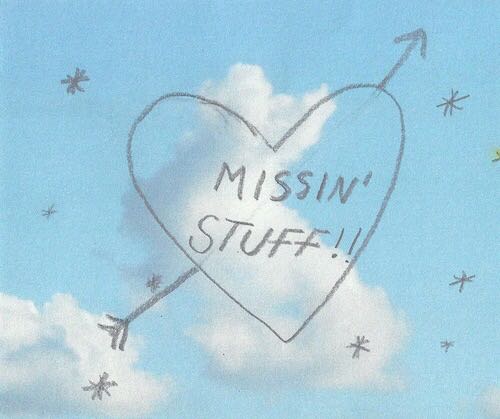 MISSIN'
STUFF!!